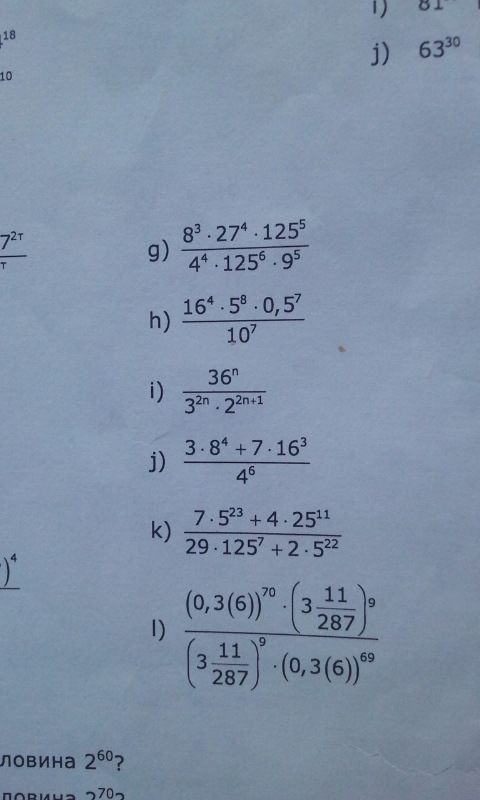 18
i) 81
10
j) 63³⁰
7²ᵀ
т
g) (8³ · 27⁴ · 125⁵) / (4⁴ · 125⁶ · 9⁵)
h) (16⁴ · 5⁸ · 0,5⁷) / 10⁷
i) 36ⁿ / (3²ⁿ · 2²ⁿ⁺¹)
j) (3 · 8⁴ + 7 · 16³) / 4⁶
k) (7 · 5²³ + 4 · 25¹¹) / (29 · 125⁷ + 2 · 5²²)
)⁴
l) ((0,3(6))⁷⁰ · (3 11/287)⁹) / ((3 11/287)⁹ · (0,3(6))⁶⁹)
ловина 2⁶⁰?
ловина 2⁷⁰?